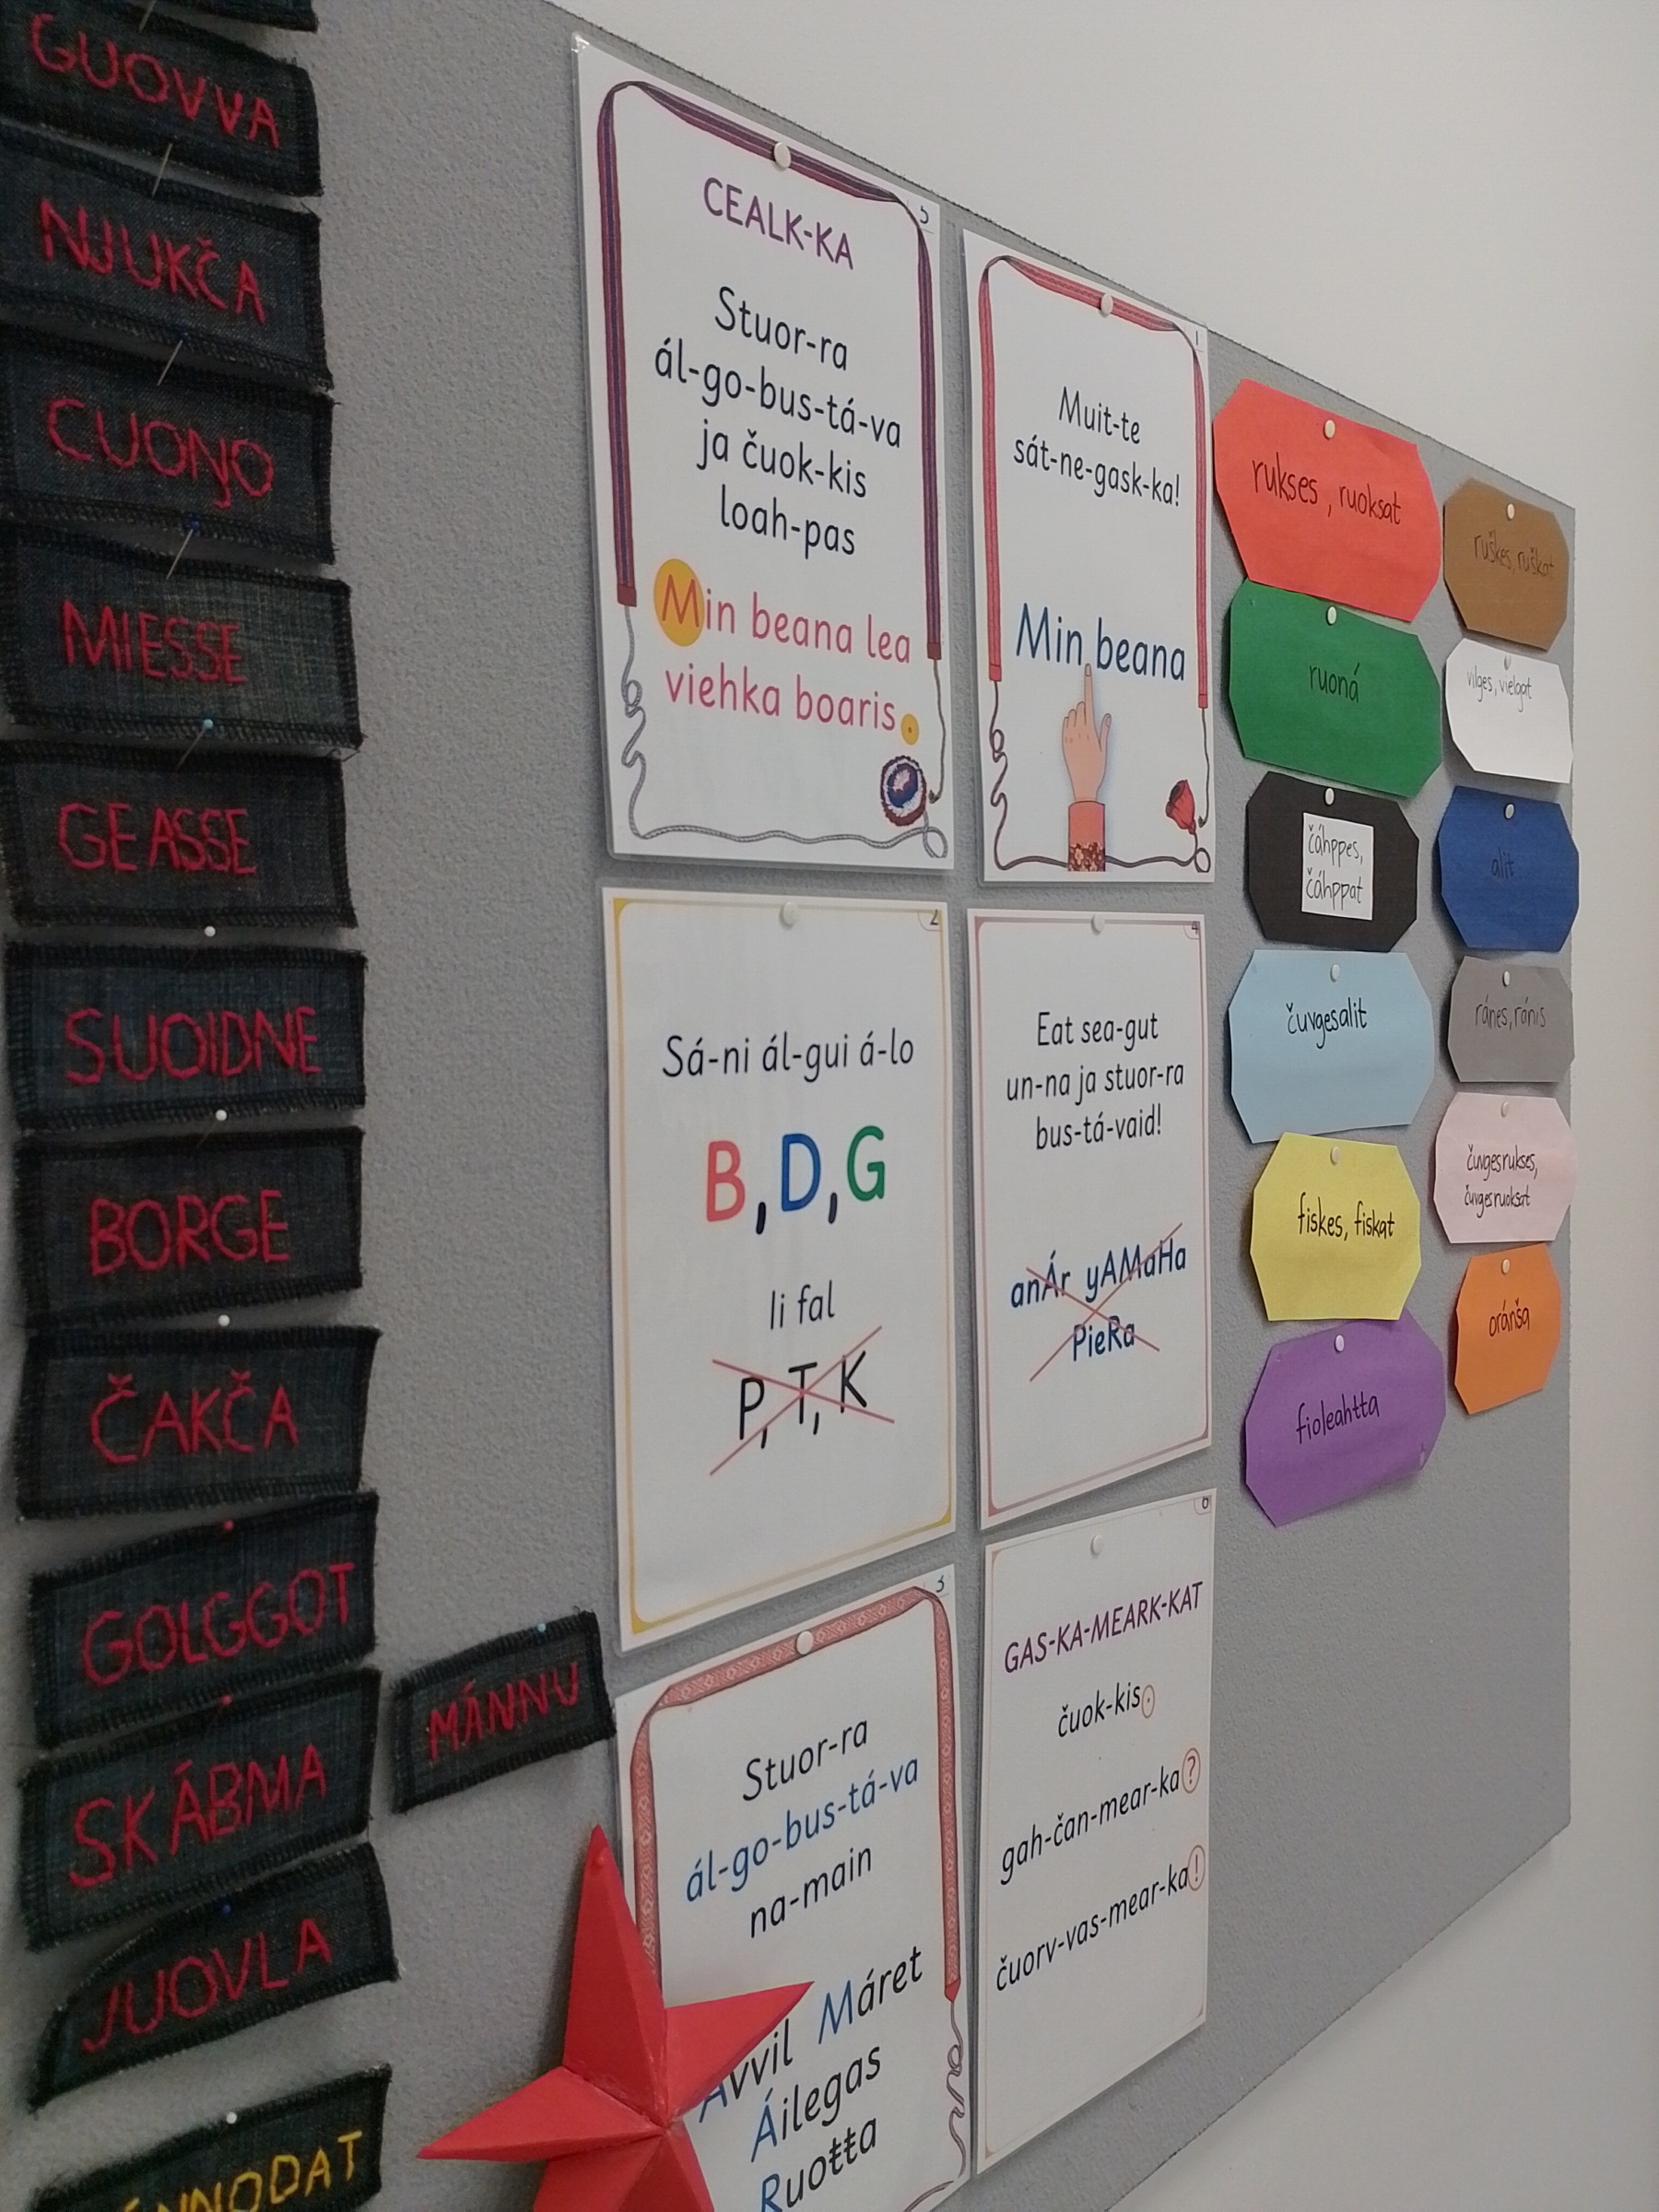 GUOVVA
NJUKČA
CUOŊO
MIESSE
GEASSE
SUOIDNE
BORGE
ČAKČA
GOLGGOT
SKÁBMA
JUOVLA
MÁNNU
5
CEALK-KA
Stuor-ra
ál-go-bus-tá-va
ja čuok-kis
loah-pas
Min beana lea
viehka boaris.
1
Muit-te
sát-ne-gask-ka!
Min beana
2
Sá-ni ál-gui á-lo
B, D, G
Ii fal
P, T, K
4
Eat sea-gut
un-na ja stuor-ra
bus-tá-vaid!
anÁr yAMaHa
PieRa
3
Stuor-ra
ál-go-bus-tá-va
na-main
Avvil Máret
Áilegas
Ruoŧŧa
6
GAS-KA-MEARK-KAT
čuok-kis.
gah-čan-mear-ka?
čuorv-vas-mear-ka!
rukses, ruoksat
ruoná
čáhppes,
čáhppat
čuvgesalit
fiskes, fiskat
fioleahtta
ruškes, ruškat
vilges, vielgat
alit
ránes, ránis
čuvgesrukses,
čuvgesruoksat
oránša